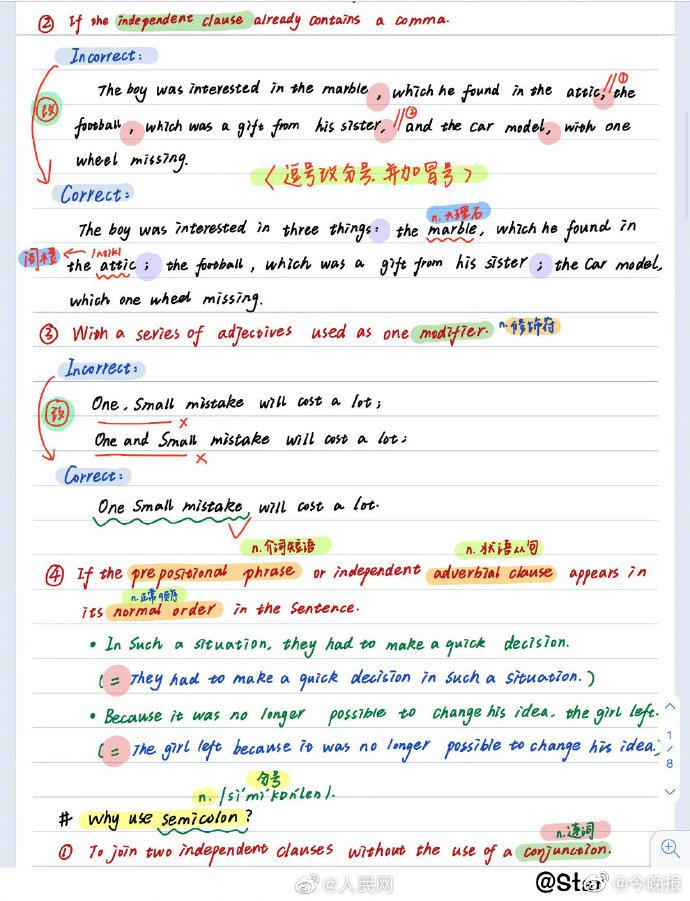 ② If the independent clause already contains a comma.
Incorrect:
The boy was interested in the marble, which he found in the attic, the ①
改
football, which was a gift from his sister, and the car model, with one ②
wheel missing.
〈逗号改分号、并加冒号〉
Correct:
n.大理石
The boy was interested in three things: the marble, which he found in
阁楼
the attic; the football, which was a gift from his sister; the Car model,
which one wheel missing.
③ With a series of adjectives used as one modifier. n.修饰符
Incorrect:
改
One, Small mistake will cost a lot;
One and Small mistake will cost a lot;
Correct:
One Small mistake, will cost a lot.
n.介词短语 n.状语从句
④ If the prepositional phrase or independent adverbial clause appears in
n.正常顺序
its normal order in the sentence.
• In Such a situation, they had to make a quick decision.
( = They had to make a quick decision in such a situation.)
• Because it was no longer possible to change his idea, the girl left.
( = The girl left because it was no longer possible to change his idea.)
分号
n. /si'mi'kɒnlen/.
# Why use semicolon?
n.连词
① To join two independent clauses without the use of a conjunction.
1
/
8
@Star
@人民网
@今晚报